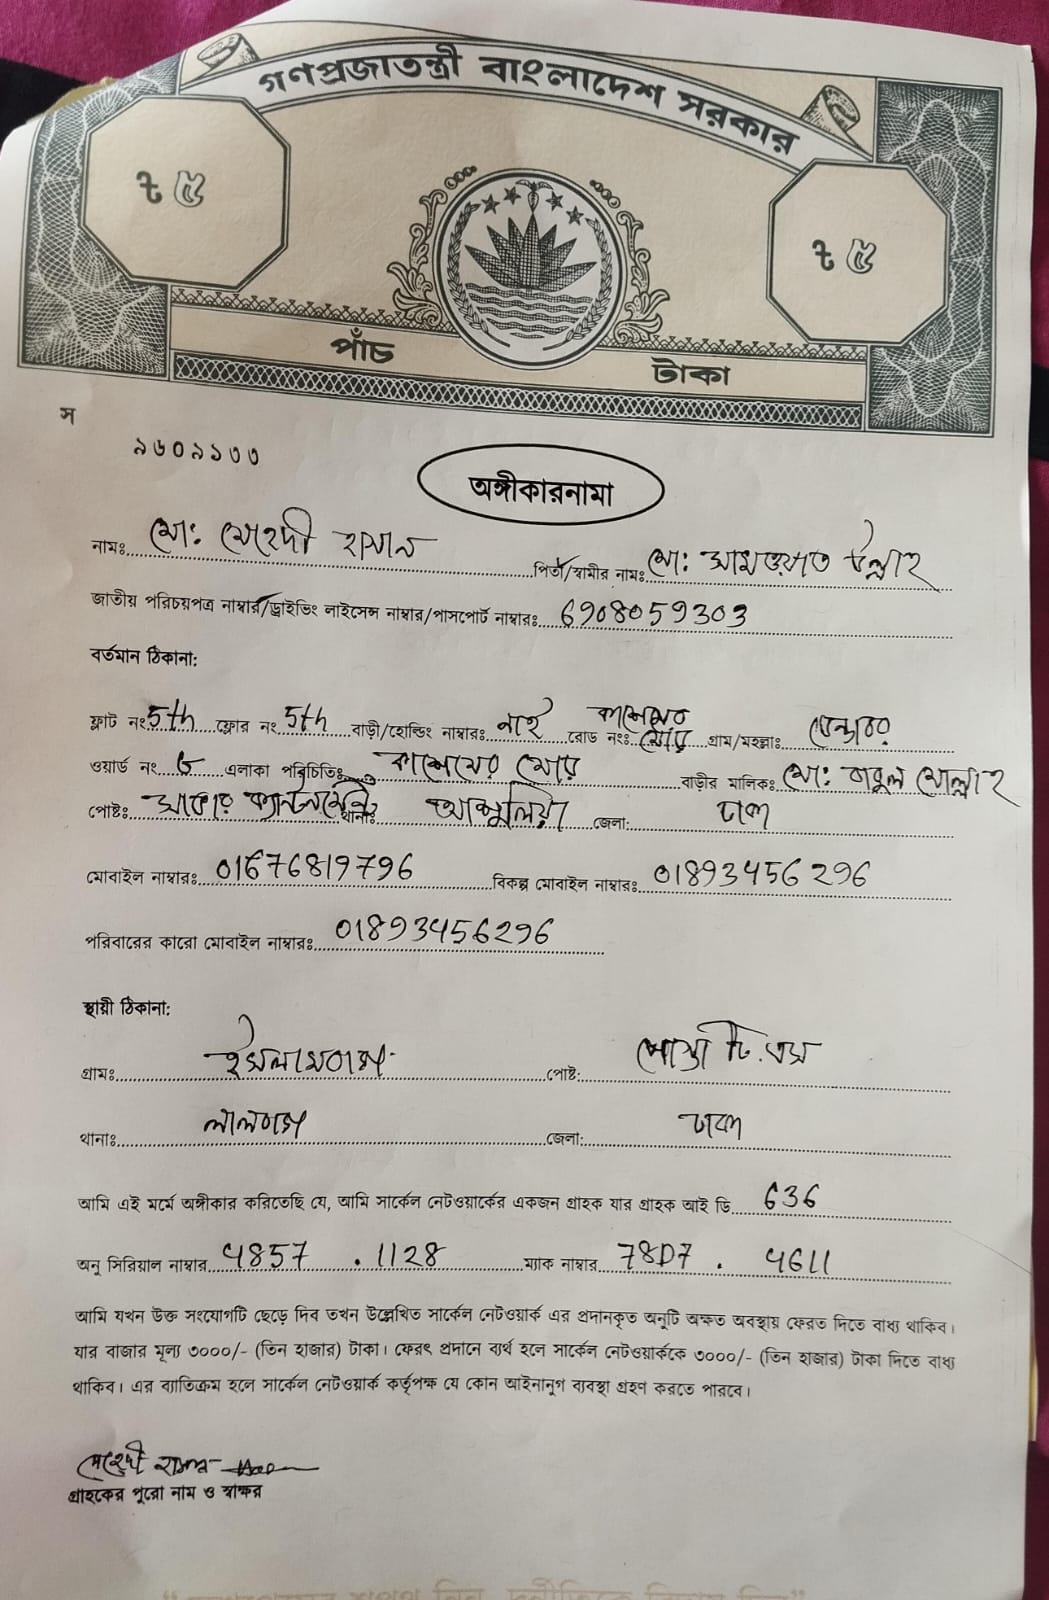 গণপ্রজাতন্ত্রী বাংলাদেশ সরকার
৳ ৫
৳ ৫
পাঁচ টাকা
স
৯৬০৯১৩৩
অঙ্গীকারনামা
নামঃ মোঃ মেহেদী হাসান পিতা/স্বামীর নামঃ মোঃ উল্লাহ
জাতীয় পরিচয়পত্র নাম্বার/ড্রাইভিং লাইসেন্স নাম্বার/পাসপোর্ট নাম্বারঃ 6908059303
বর্তমান ঠিকানা:
ফ্লাট নং 5th ফ্লোর নং 5th বাড়ী/হোল্ডিং নাম্বারঃ নাই রোড নংঃ কাশেমের মোড় গ্রাম/মহল্লাঃ
ওয়ার্ড নং ৬ এলাকা পরিচিতিঃ কাশেমের মোড় বাড়ীর মালিকঃ মোঃ বাবুল মোল্লাহ
পোষ্টঃ সাভার ক্যান্টনমেন্ট থানাঃ আশুলিয়া জেলা: ঢাকা
মোবাইল নাম্বারঃ 01676819796 বিকল্প মোবাইল নাম্বারঃ 01893456296
পরিবারের কারো মোবাইল নাম্বারঃ 01893456296
স্থায়ী ঠিকানা:
গ্রামঃ ইসলামবাগ পোষ্ট: পোস্তা টি.এস
থানাঃ লালবাগ জেলা: ঢাকা
আমি এই মর্মে অঙ্গীকার করিতেছি যে, আমি সার্কেল নেটওয়ার্কের একজন গ্রাহক যার গ্রাহক আই ডি 636
অনু সিরিয়াল নাম্বার 4857 . 1128 ম্যাক নাম্বার 78D7 . 4611
আমি যখন উক্ত সংযোগটি ছেড়ে দিব তখন উল্লেখিত সার্কেল নেটওয়ার্ক এর প্রদানকৃত অনুটি অক্ষত অবস্থায় ফেরত দিতে বাধ্য থাকিব।
যার বাজার মূল্য ৩০০০/- (তিন হাজার) টাকা। ফেরৎ প্রদানে ব্যর্থ হলে সার্কেল নেটওয়ার্ককে ৩০০০/- (তিন হাজার) টাকা দিতে বাধ্য
থাকিব। এর ব্যাতিক্রম হলে সার্কেল নেটওয়ার্ক কর্তৃপক্ষ যে কোন আইনানুগ ব্যবস্থা গ্রহণ করতে পারবে।
মেহেদী হাসান
গ্রাহকের পুরো নাম ও স্বাক্ষর